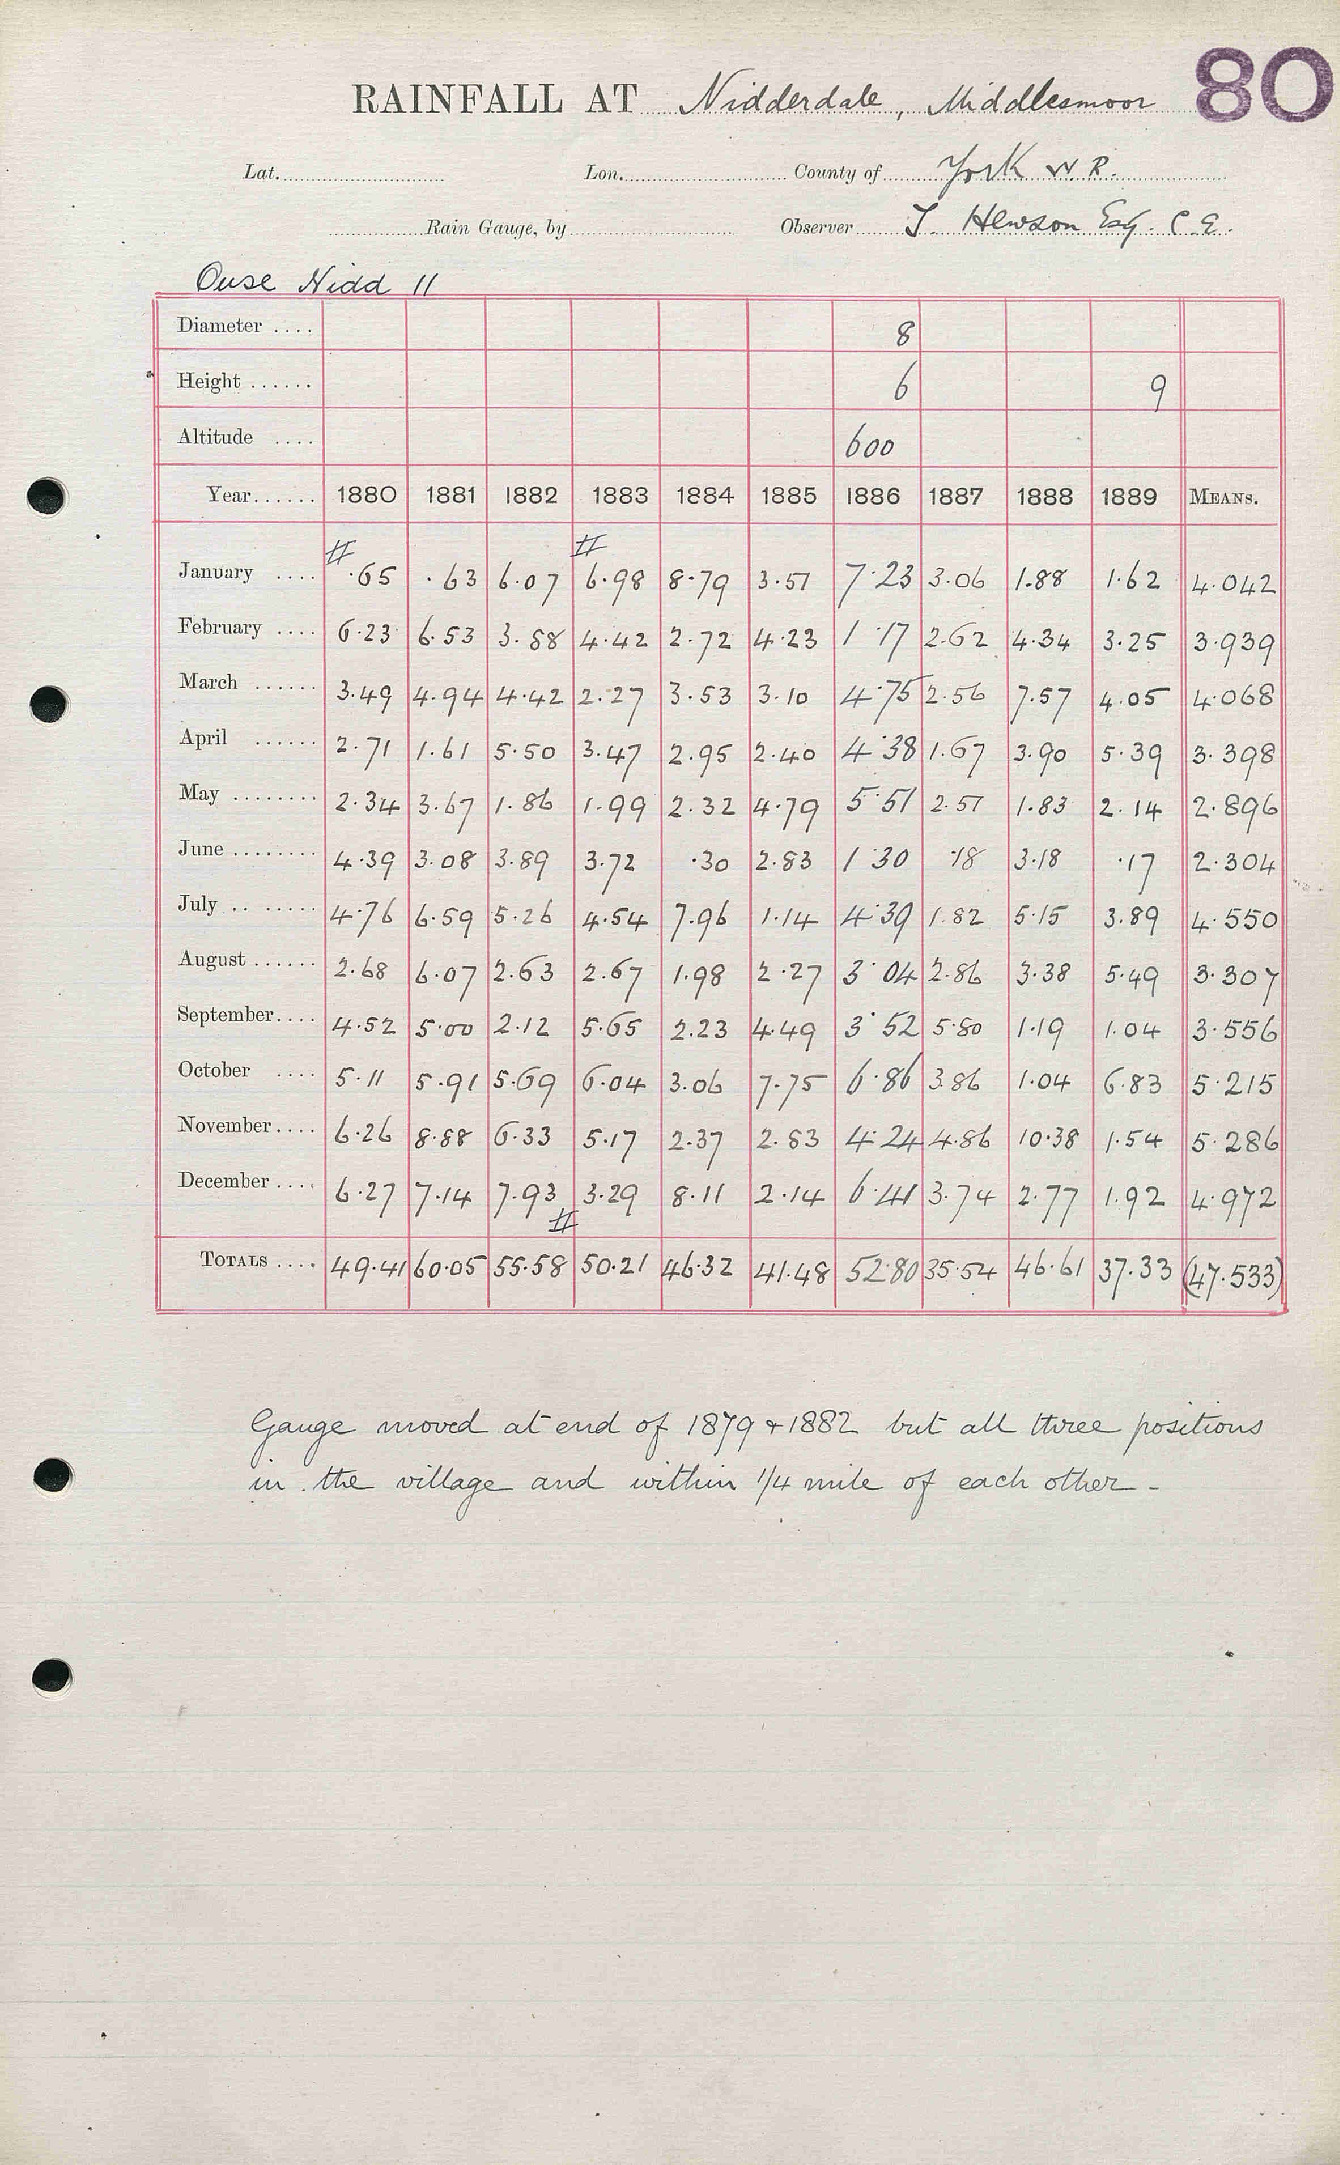 80
RAINFALL AT Nidderdale, Middlesmoor
Lat. Lon. County of York W.R.
Rain Gauge, by Observer T. Hewson Esq. C.E.
Ouse Nidd 11
Diameter .... 8
Height ...... 6 9
Altitude .... 600
Year...... 1880 1881 1882 1883 1884 1885 1886 1887 1888 1889 MEANS.
# #
January .... .65 .63 6.07 6.98 8.79 3.57 7.23 3.06 1.88 1.62 4.042
February .... 6.23 6.53 3.88 4.42 2.72 4.23 1.17 2.62 4.34 3.25 3.939
March ...... 3.49 4.94 4.42 2.27 3.53 3.10 4.75 2.56 7.57 4.05 4.068
April ...... 2.71 1.61 5.50 3.47 2.95 2.40 4.38 1.67 3.90 5.39 3.398
May ........ 2.34 3.67 1.86 1.99 2.32 4.79 5.51 2.51 1.83 2.14 2.896
June ........ 4.39 3.08 3.89 3.72 .30 2.83 1.30 .18 3.18 .17 2.304
July .. ...... 4.76 6.59 5.26 4.54 7.96 1.14 4.39 1.82 5.15 3.89 4.550
August ...... 2.68 6.07 2.63 2.67 1.98 2.27 3.04 2.86 3.38 5.49 3.307
September.... 4.52 5.00 2.12 5.65 2.23 4.49 3.52 5.80 1.19 1.04 3.556
October .... 5.11 5.91 5.69 6.04 3.06 7.75 6.86 3.86 1.04 6.83 5.215
November.... 6.26 8.88 6.33 5.17 2.37 2.83 4.24 4.86 10.38 1.54 5.286
December .... 6.27 7.14 7.93 3.29 8.11 2.14 6.41 3.74 2.77 1.92 4.972
#
TOTALS .... 49.41 60.05 55.58 50.21 46.32 41.48 52.80 35.54 46.61 37.33 (47.533)
Gauge moved at end of 1879 + 1882 but all three positions
in the village and within 1/4 mile of each other -